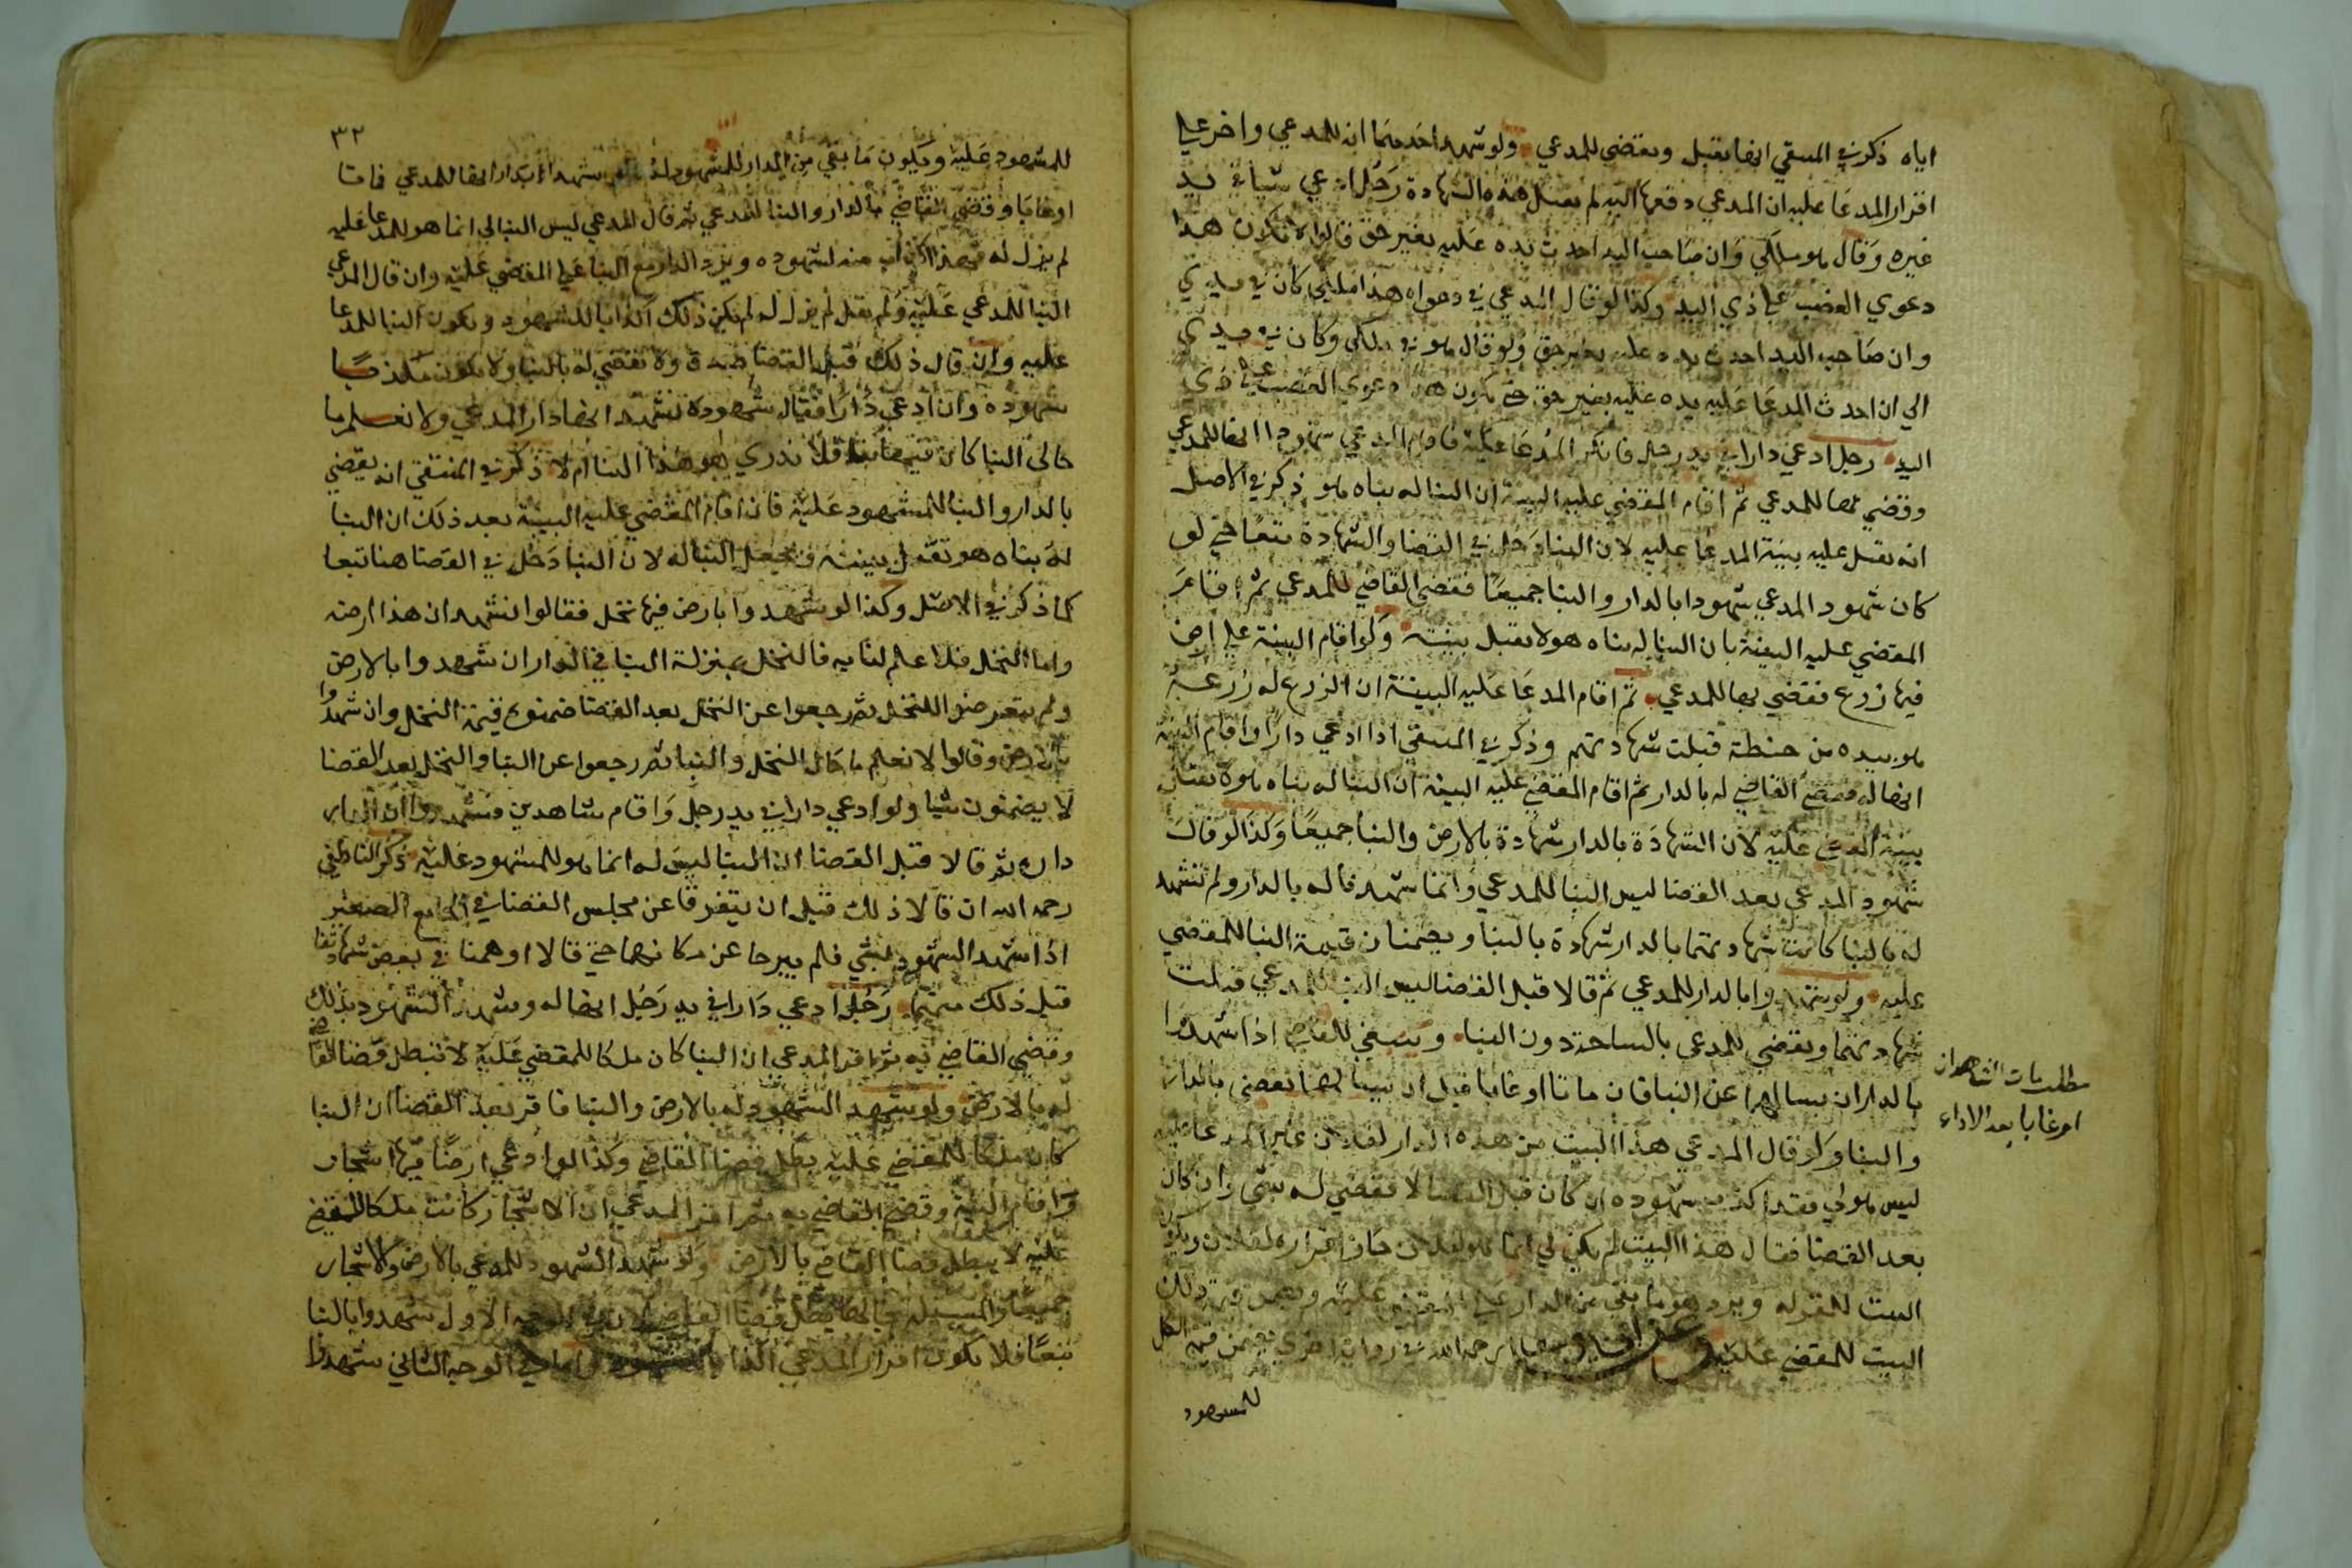 اياه ذكر في المنتقي انها يقبل ويقضي للمدعي ولو شهد احدهما انه للمدعي واخر علي
اقرار المدعا عليه ان المدعي دفعها اليه لم يقبل هذه الشهادة رجل ادعي شيا في يد
غيره وقال هو ملكي وان صاحب اليد احدث يده عليه بغير حق قالوا لا تكون هذا
دعوي الغصب علي ذي اليد وكذا لو قال المدعي في دعواه هذا ملكي كان في يدي
وان صاحب اليد احدث يده عليه بغير حق ولو قال هو في ملكي وكان في يدي
الي ان احدث المدعا عليه يده عليه بغير حق يكون هذا دعوي الغصب علي ذي
اليد رجل ادعي دارا في يد رجل فانكر المدعا عليه فاقام المدعي شهودا انها للمدعي
وقضي بها للمدعي ثم اقام المقضي عليه البينة ان البنا له بناه هو ذكر في الاصل
انه يقبل عليه بينة المدعا عليه لان البنا دخل في القضا والشهادة تبعا حتي لو
كان شهود المدعي شهودا بالدار والبنا جميعا فقضي القاضي للمدعي ثم اقام
المقضي عليه البينة بان البنا له بناه هو لا يقبل بينته ولو اقام البينة علي ارض
فيها زرع فقضي بها للمدعي ثم اقام المدعا عليه البينة ان الزرع له زرعه
هو بيده من حنطة قبلت شهادتهم وذكر في المنتقي اذا ادعي دارا واقام البينة
انها له فقضي القاضي له بالدار ثم اقام المقضي عليه البينة ان البنا له بناه هو لا يقبل
بينة المقضي عليه لان الشهادة بالدار شهادة بالارض والبنا جميعا وكذا لو قال
شهود المدعي بعد القضا ليس البنا للمدعي وانما شهدنا له بالدار ولم نشهد
له بالبنا كانت شهادتهما بالدار شهادة بالبنا ويضمنان قيمة البنا للمقضي
عليه ولو شهدوا بالدار للمدعي ثم قالا قبل القضا ليس البنا للمدعي قبلت
شهادتهما ويقضي للمدعي بالساحة دون البنا وينبغي للقاضي اذا شهدا
بالدار ان يسالهما عن البنا فان ماتا او غابا قبل ان يسالهما يقضي بالدار
والبنا ولو قال المدعي هذا البيت من هذه الدار لفلان غير المدعا عليه
ليس هو لي فقد اكذب شهوده ان كان قبل القضا لا يقضي له بشي وان كان
بعد القضا فقال هذا البيت لم يكن لي انما هو لفلان جاز اقراره لفلان ويكون
البيت للمقر له ويرد ما بقي من الدار علي المقضي عليه ويضمن قيمة ذلك
البيت للمقضي عليه وعن ابي يوسف رحمه الله في رواية اخري يضمن قيمة الكل
للمشهود
مطلب مات الشاهدان
او غابا بعد الاداء
٣٢
للمشهود عليه ويكون ما بقي من الدار للمشهود له شهدا بدار انها للمدعي فماتا
او غابا وقضي القاضي بالدار والبنا للمدعي ثم قال المدعي ليس البنا لي انما هو للمدعا عليه
لم يزل له فهذا اكذاب منه لشهوده ويرد الدار مع البنا علي المقضي عليه وان قال المدعي
البنا للمدعي عليه ولم يقل لم يزل له لم يكن ذلك اكذابا للشهود ويكون البنا للمدعا
عليه وان قال ذلك قبل القضا ولا يقضي له بالبنا ولا يكون مكذبا
شهوده وان ادعي دارا فقال شهوده نشهد انها دار المدعي ولا نعلم ما
حال البنا كان فيها بنا فلا ندري اهو هذا البنا ام لا ذكر في المنتقي انه يقضي
بالدار والبنا للمشهود عليه فان اقام المقضي عليه البينة بعد ذلك ان البنا
له بناه هو تقبل بينته ويجعل البنا له لان البنا دخل في القضا هنا تبعا
كما ذكر في الاصل وكذا لو شهدوا بارض فيها نخل فقالوا نشهد ان هذا ارضه
واما النخل فلا علم لنا به فالنخل بمنزلة البنا في الدار ان شهدوا بالارض
ولم يتعرضوا للنخل ثم رجعوا عن النخل بعد القضا ضمنوا قيمة النخل وان شهدوا
بالارض وقالوا لا نعلم ما حال النخل والبنا ثم رجعوا عن البنا والنخل بعد القضا
لا يضمنون شيا ولو ادعي دارا في يد رجل واقام شاهدين فشهدوا ان الدار
داره ثم قالا قبل القضا ان البنا ليس له انما هو للمشهود عليه ذكر الناطفي
رحمه الله ان قالا ذلك قبل ان يتفرقا عن مجلس القضا في الجامع الصغير
اذا شهد الشهود بشي فلم يبرحا عن مكانهما حتي قالا اوهمنا في بعض شهادتنا
قبل ذلك منهما رجل ادعي دارا في يد رجل انها له وشهد الشهود بذلك
وقضي القاضي به ثم اقر المدعي ان البنا كان ملكا للمقضي عليه لا تبطل قضا القاضي
له بالارض ولو شهد الشهود له بالارض والبنا فاقر بعد القضا ان البنا
كان ملكا للمقضي عليه بطل قضا القاضي وكذا لو ادعي ارضا فيها اشجار
واقام البينة وقضي القاضي به ثم اقر المدعي ان الاشجار كانت ملكا للمقضي
عليه لا يبطل قضا القاضي بالارض ولو شهد الشهود للمدعي بالارض والاشجار
جميعا والمسيلة بحالها يبطل قضا القاضي لان في الوجه الاول شهدوا بالبنا
تبعا فلا يكون اقرار المدعي اكذابا للشهود اما في الوجه الثاني شهدوا